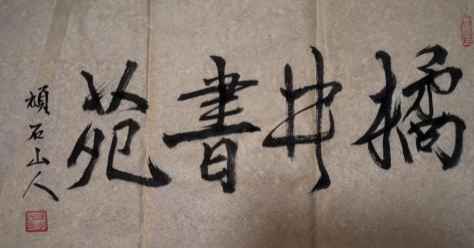 橘井書苑
頑石山人